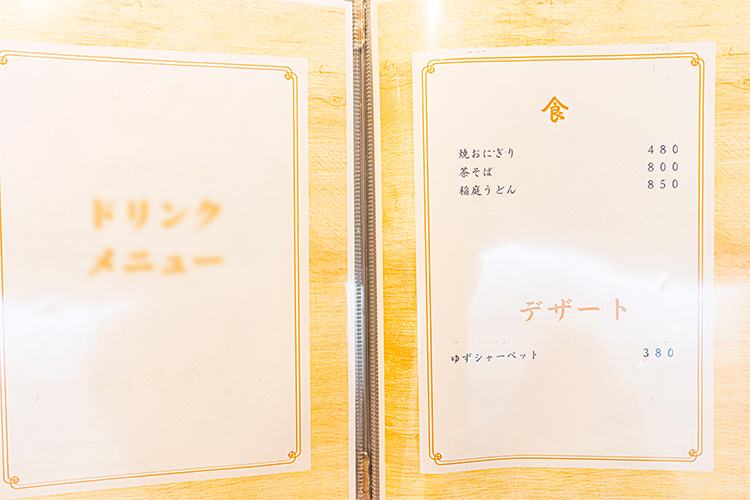 ドリンク
メニュー
食
焼おにぎり 480
茶そば 800
稲庭うどん 850
デザート
ゆずシャーベット 380